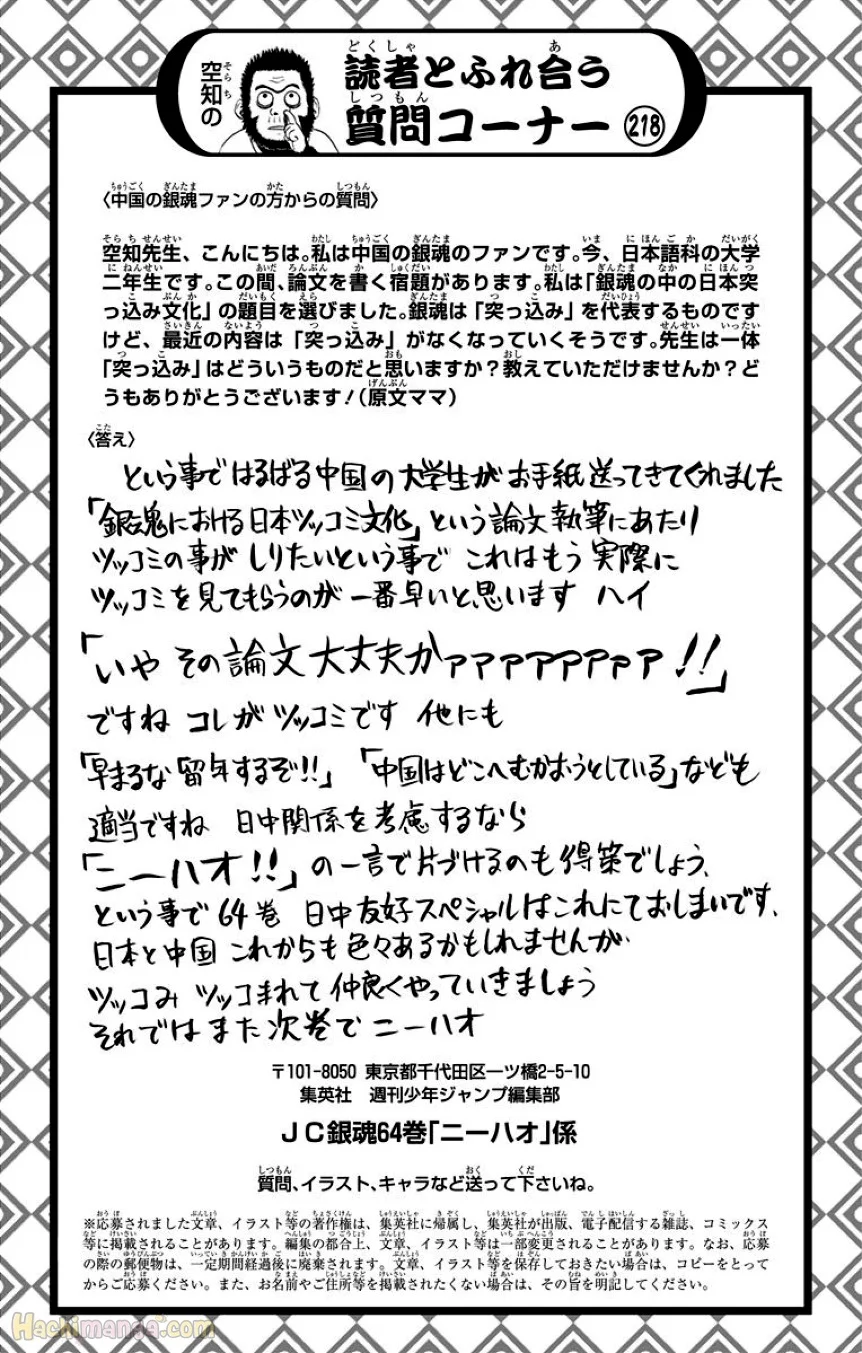 空知の
読者とふれ合う
質問コーナー 218
〈中国の銀魂ファンの方からの質問〉
空知先生、こんにちは。私は中国の銀魂のファンです。今、日本語科の大学
二年生です。この間、論文を書く宿題があります。私は「銀魂の中の日本突
っ込み文化」の題目を選びました。銀魂は「突っ込み」を代表するものです
けど、最近の内容は「突っ込み」がなくなっていくそうです。先生は一体
「突っ込み」はどういうものだと思いますか？教えていただけませんか？ど
うもありがとうございます！（原文ママ）
〈答え〉
という事ではるばる中国の大学生がお手紙送ってきてくれました
「銀魂における日本ツッコミ文化」という論文執筆にあたり
ツッコミの事がしりたいという事で これはもう実際に
ツッコミを見てもらうのが一番早いと思います ハイ
「いや その論文大丈夫かァァァァァァァァ!!」
ですね コレがツッコミです 他にも
「早まるな 留年するぞ!!」「中国はどこへむかおうとしている」なども
適当ですね 日中関係を考慮するなら
「ニーハオ!!」の一言で片づけるのも得策でしょう、
という事で64巻 日中友好スペシャルはこれにておしまいです、
日本と中国 これからも色々あるかもしれませんが
ツッコみ ツッコまれて仲良くやっていきましょう
それではまた次巻で ニーハオ
〒101-8050 東京都千代田区一ツ橋2-5-10
集英社 週刊少年ジャンプ編集部
ＪＣ銀魂64巻「ニーハオ」係
質問、イラスト、キャラなど送って下さいね。
※応募されました文章、イラスト等の著作権は、集英社に帰属し、集英社が出版、電子配信する雑誌、コミックス
等に掲載されることがあります。編集の都合上、文章、イラスト等は一部変更されることがあります。なお、応募
の際の郵便物は、一定期間経過後に廃棄されます。文章、イラスト等を保存しておきたい場合は、コピーをとって
からご応募ください。また、お名前やご住所等を掲載されたくない場合は、その旨を明記してください。
Hachimanga.com